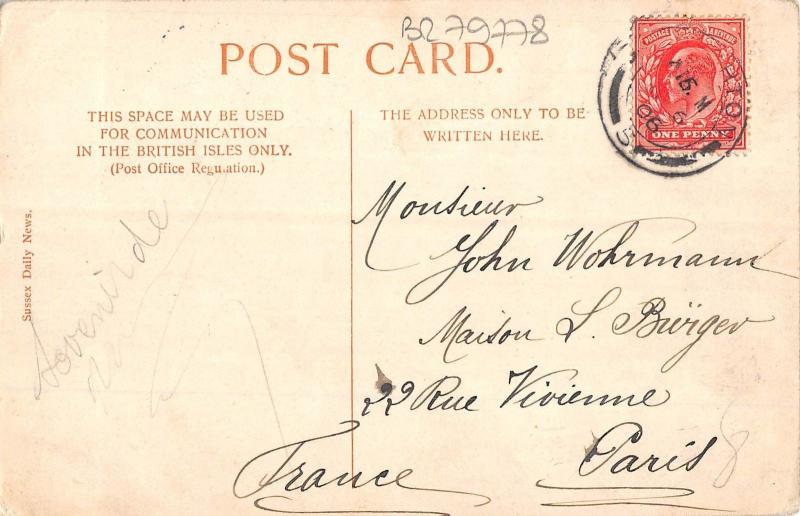 BR 79778
POST CARD.
POSTAGE & REVENUE
ONE PENNY
THIS SPACE MAY BE USED
FOR COMMUNICATION
IN THE BRITISH ISLES ONLY.
(Post Office Regulation.)
THE ADDRESS ONLY TO BE
WRITTEN HERE.
Sussex Daily News.
Sovenir de
Monsieur
John Wohrmann
Maison L. Bürger
22 Rue Vivienne
Paris
France